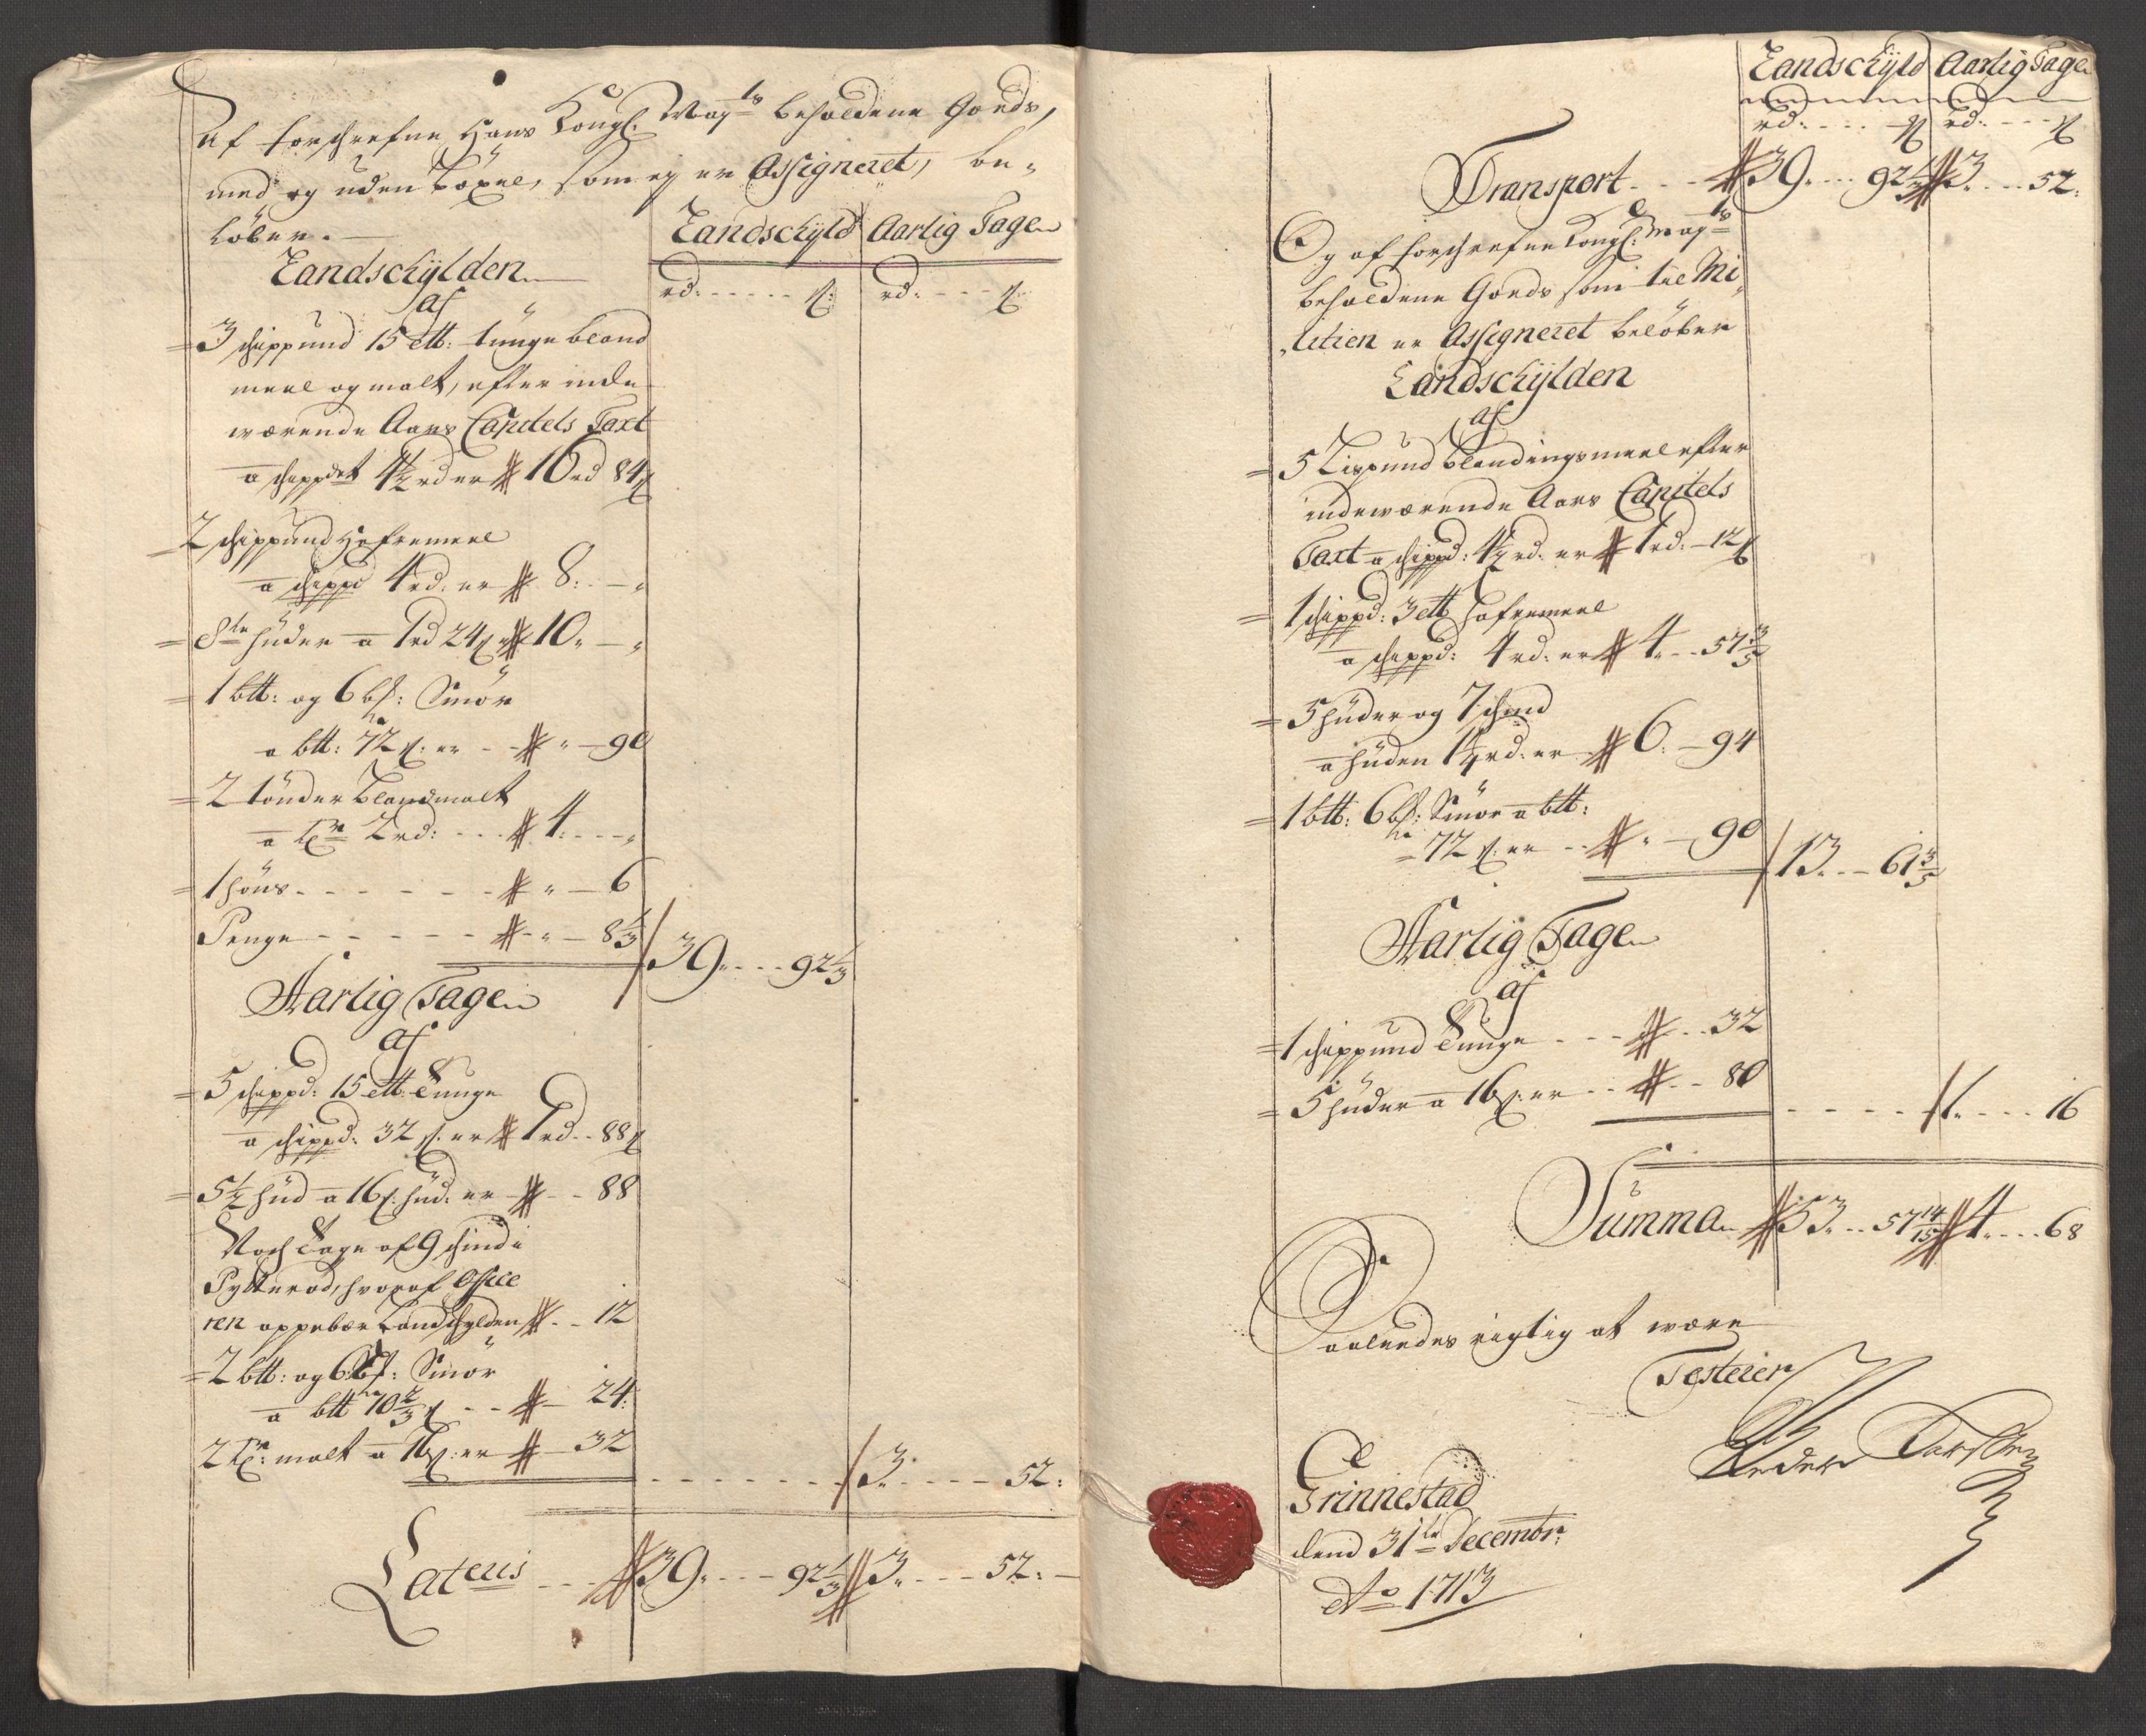 Af forschrefne Hans Kongl. Mayts beholdene Goeds,
med og uden Bøxel, som ej er Assigneret, be-
løber.
Landschÿld Aarlig Tage
rd: ß: rd: ß
Landschÿlden
af
3 schippund 15 ℔: tunge bland
meel og malt, efter inde
wærende Aars Capitels Taxt
a schippdet 4½ rd er 16 rd 84 ß
2 schippund Hafremeel
a schippd 4 rd: er 8: — "
8te huder a 1 rd 24 ß er 10 " — "
1 b℔: og 6 bs: Smör
a b℔: 72 ß: er " — 90
2 tönder blandmalt
a Tr 2 rd: 4: "
1 höns " — 6
Penge " — 8⅓
39 " 92⅓
Aarlig Tage
af
5 schippd: 15 ℔ Tunge
a schippd: 32 ß: er 1 rd 88 ß
5½ hud a 16 ß: hud: er 88
Noch Tage af 9 schind i
Pytterød, hvoraf Office
ren oppebær Landschylden 12
2 b℔: og 6 bs: Smör
a b℔ 10⅔ ß 24:
2 Tr: malt a 16 ß: er 32
3 " 52:
Lateris 39 " 92⅓ 3 " 52:
Landschÿld Aarlig Tage
rd: ß rd: ß
Transport 39 " 92⅓ 3 " 52:
Og af forschrefne Kongl: Mayts
beholdene Goeds som til Mi-
litien er Assigneret beløber
Landschÿlden
af
5 Lispund blandingsmeel efter
indewærende Aars Capitels
Taxt a schippd: 4½ rd: er 1 rd: — 12 ß
1 schippd: 3 ℔ hafremeel
a schippd: 4 rd: er 4 " 57⅗
5 huder og 7 schind
a huden 1¼ rd: er 6: — 94
1 b℔: 6 bs: Smör a b℔:
72 ß: er " — 90
13 " 61⅗
Aarlig Tage
af
1 schippund Tunge 32
5 huder a 16 ß: er 80
1 " 16
Summa 53 " 57 14/15 4 " 68
Saaleedes rigtig at wære
Testerer
Grinnestad
dend 31te Decembr:
Ao 1713
Peder Carstens